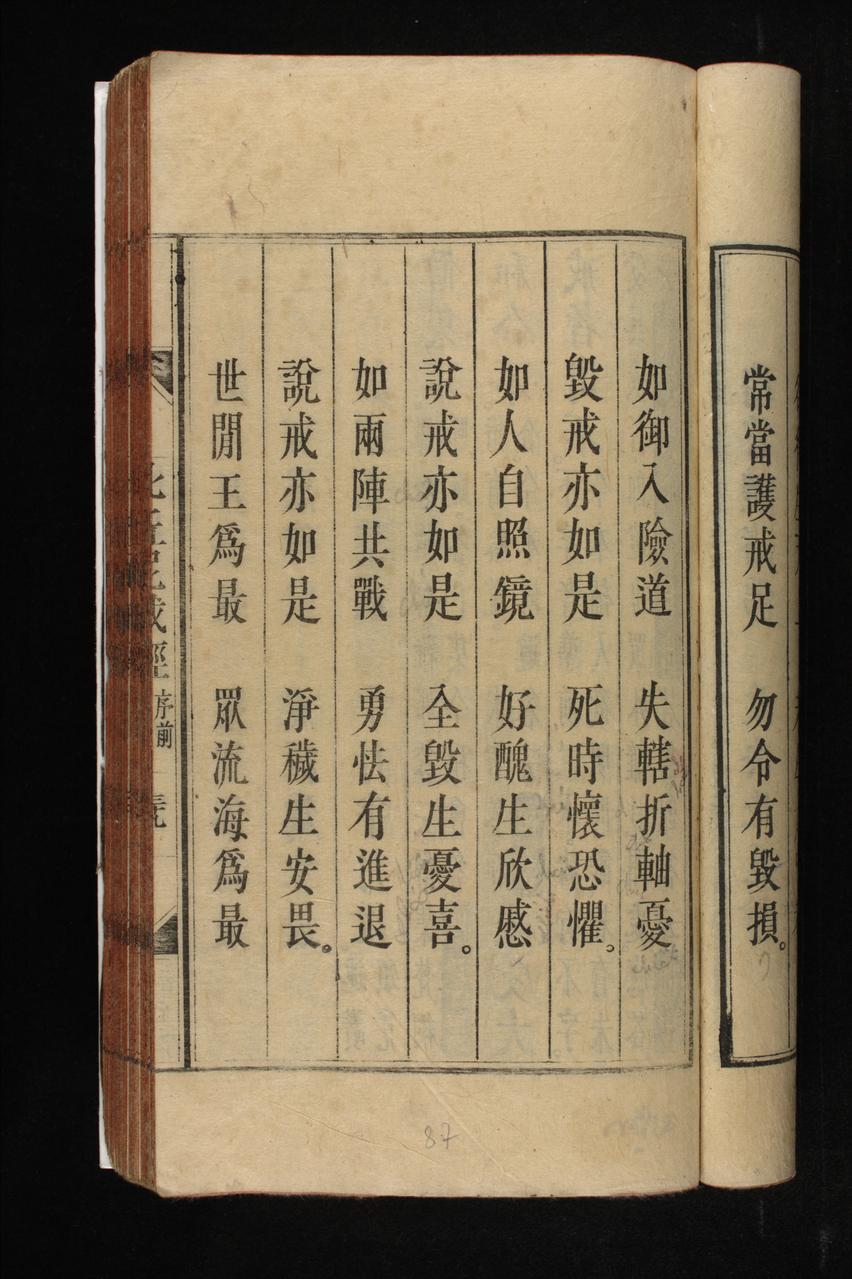 常當護戒足　勿令有毀損。
如御入險道　失轄折軸憂
毀戒亦如是　死時懷恐懼。
如人自照鏡　好醜生欣慼
說戒亦如是　全毀生憂喜。
如兩陣共戰　勇怯有進退
說戒亦如是　淨穢生安畏。
世閒王爲最　眾流海爲最
戒經　序前
87